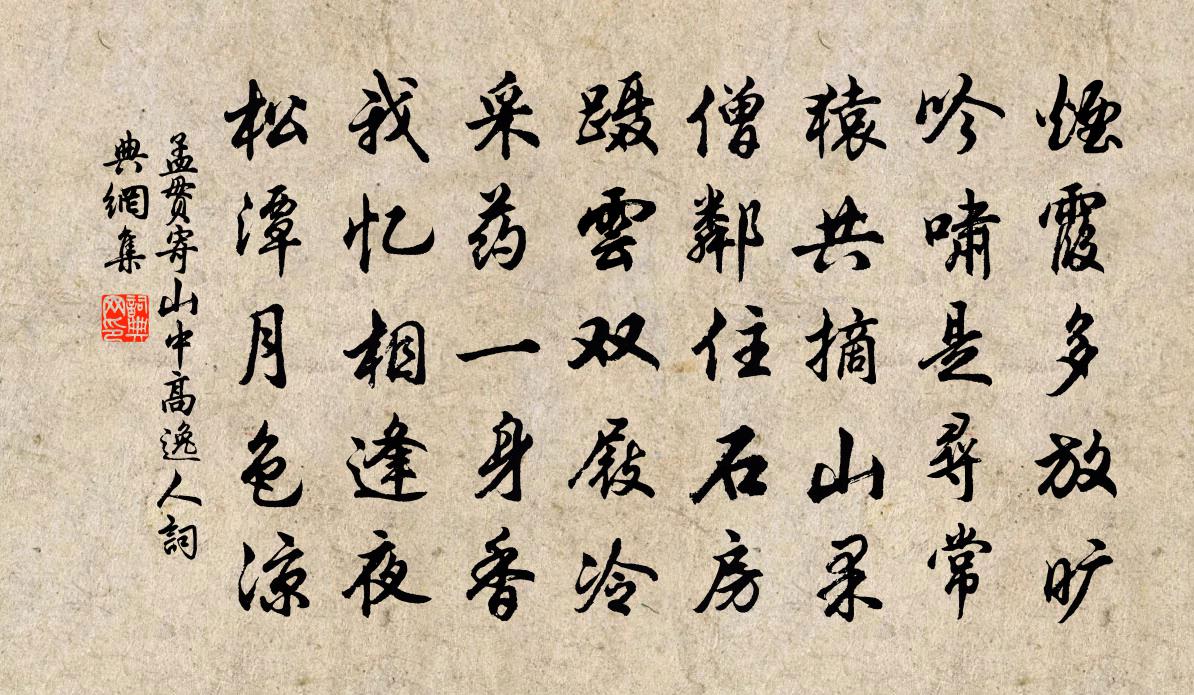 煙霞多放旷
吟嘯是尋常
猿共摘山果
僧鄰住石房
蹑雲双屐冷
采药一身香
我忆相逢夜
松潭月色凉
孟貫寄山中高逸人詞
典網集
詞典网印